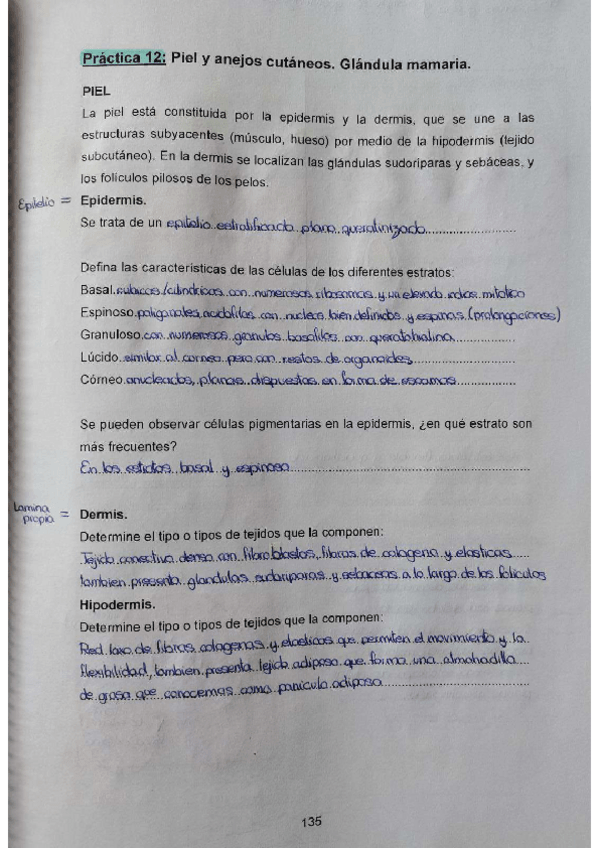 Práctica 12: Piel y anejos cutáneos. Glándula mamaria.
PIEL
La piel está constituida por la epidermis y la dermis, que se une a las
estructuras subyacentes (músculo, hueso) por medio de la hipodermis (tejido
subcutáneo). En la dermis se localizan las glándulas sudoríparas y sebáceas, y
los folículos pilosos de los pelos.
Epitelio = Epidermis.
Se trata de un epitelio estratificado plano queratinizado
Defina las características de las células de los diferentes estratos:
Basal cubicas/cilindricas con numerosos ribosomas y un elevado indice mitotico
Espinoso poligonales, acidofilas con nucleos bien definidos y espinas (prolongaciones)
Granuloso con numerosos granulos basofilos con queratohialina
Lúcido similar al corneo pero con restos de organoides
Córneo anucleados, planas dispuestas en forma de escamas
Se pueden observar células pigmentarias en la epidermis, ¿en qué estrato son
más frecuentes?
En los estratos basal y espinoso
Lamina propia = Dermis.
Determine el tipo o tipos de tejidos que la componen:
Tejido conectivo denso con fibroblastos, fibras de colageno y elasticas
tambien presenta glandulas sudoriparas y sebaceas a lo largo de los foliculos
Hipodermis.
Determine el tipo o tipos de tejidos que la componen:
Red laxa de fibras colagenas y elasticas que permiten el movimiento y la
flexibilidad, tambien presenta tejido adiposo que forma una almohadilla
de grasa que conocemos como paniculo adiposo
135